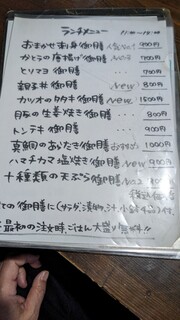 ランチメニュー 11:30〜13:00
おまかせお刺身御膳 人気No.1 900円
かとうの唐揚げ御膳 No.2 700円
トリマヨ御膳 ... 700円
親子丼御膳 New 800円
カツオのタタキ御膳 New 1500円
豚の生姜焼き御膳 ... 800円
トンテキ御膳 ... 900円
真鯛のあいたき御膳 おすすめ 1000円
ハマチカマ塩焼き御膳 New 900円
十種類の天ぷら御膳 No.3
ての御膳に(サラダ、漬物、汁、小鉢
最初の注文時、ごはん大盛り無料!!